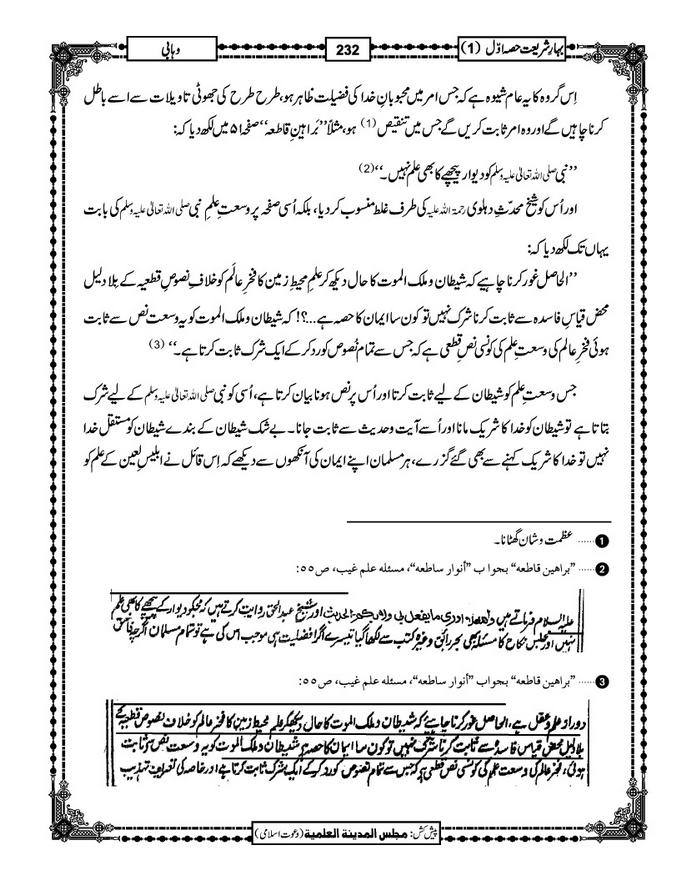 بہارِ شریعت حصہ اوّل (1)
232
وہابی
اِس گروہ کا یہ عام شیوہ ہے کہ جس امر میں محبوبانِ خدا کی فضیلت ظاہر ہو، طرح طرح کی جھوٹی تاویلات سے اسے باطل
کرنا چاہیں گے اور وہ امر ثابت کریں گے جس میں تنقیص (1) ہو، مثلاً ’’بَراہینِ قاطعہ‘‘ صفحہ ۵۱ میں لکھ دیا کہ:
’’نبی صلی اللہ تعالیٰ علیہ وسلم کو دیوار پیچھے کا بھی علم نہیں۔‘‘ (2)
اور اُس کو شیخ محدّثِ دہلوی رحمۃ اللہ علیہ کی طرف غلط منسوب کر دیا، بلکہ اُسی صفحہ پر وسعتِ علمِ نبی صلی اللہ تعالیٰ علیہ وسلم کی بابت
یہاں تک لکھ دیا کہ:
’’الحاصل غور کرنا چاہیے کہ شیطان و ملک الموت کا حال دیکھ کر علمِ محیطِ زمین کا فخرِ عالَم کو خلافِ نصوصِ قطعیہ کے بلا دلیل
محض قیاسِ فاسدہ سے ثابت کرنا شرک نہیں تو کون سا ایمان کا حصہ ہے ...؟! کہ شیطان و ملک الموت کو یہ وسعت نص سے ثابت
ہوئی فخرِ عالم کی وسعتِ علم کی کونسی نصِ قطعی ہے کہ جس سے تمام نُصوص کو رد کر کے ایک شرک ثابت کرتا ہے۔‘‘ (3)
جس وسعتِ علم کو شیطان کے لیے ثابت کرتا اور اُس پر نص ہونا بیان کرتا ہے، اُسی کو نبی صلی اللہ تعالیٰ علیہ وسلم کے لیے شرک
بتاتا ہے تو شیطان کو خدا کا شریک مانا اور اُسے آیت وحدیث سے ثابت جانا۔ بے شک شیطان کے بندے شیطان کو مستقل خدا
نہیں تو خدا کا شریک کہنے سے بھی گئے گزرے، ہر مسلمان اپنے ایمان کی آنکھوں سے دیکھے کہ اِس قائل نے ابلیسِ لعین کے علم کو
❶ ...... عظمت و شان گھٹانا۔
❷ ...... ’’براهين قاطعه‘‘ بجواب ’’أنوار ساطعه‘‘، مسئله علم غيب، ص٥٥:
علیہ السلام فرماتے ہیں واللہ لا ادری ما یفعل بی ولا بکم الحدیث اور شیخ عبدالحق روایت کرتے ہیں کہ مجکو دیوار کے پیچھے کا بھی علم
نہیں اور مجلس نکاح کا مسئلہ بھی بحر رائق وغیرہ کتب سے لکھا گیا تیسرے اگر افضلیت ہی موجب اس کی ہے تو تمام مسلمان اگرچہ فاسق
❸ ...... ’’براهين قاطعه‘‘ بجواب ’’أنوار ساطعه‘‘، مسئله علم غيب، ص٥٥:
دور از علم و عقل ہے، الحاصل غور کرنا چاہیے کہ شیطان و ملک الموت کا حال دیکھ کر علم محیط زمین کا فخر عالم کو خلاف نصوص قطعیہ کے
بلا دلیل محض قیاس فاسدہ سے ثابت کرنا شرک نہیں تو کون سا ایمان کا حصہ ہے شیطان و ملک الموت کو یہ وسعت نص سے ثابت
ہوئی، فخر عالم کی وسعت علم کی کونسی نص قطعی ہے کہ جس سے تمام نصوص کو رد کر کے ایک شرک ثابت کرتا ہے اور خاصہ کی تعریف تہذیب
پیش کش: مجلس المدينة العلمية (دعوتِ اسلامی)